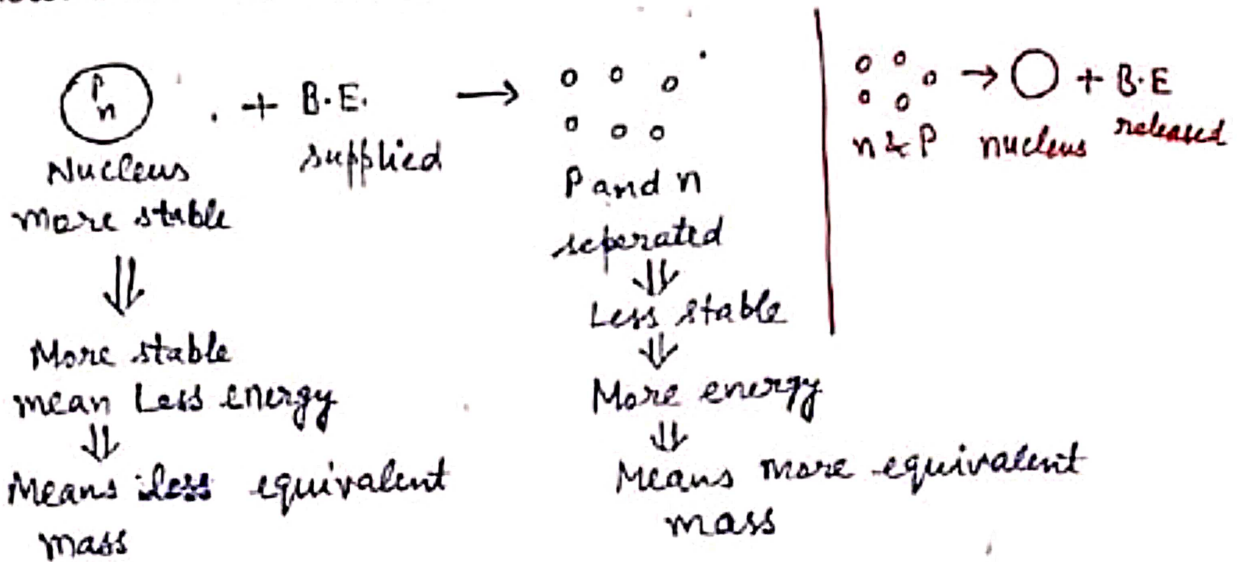 P
n
+ B.E. →
supplied
Nucleus
more stable
⇓
More stable
mean Less energy
⇓
Means less equivalent
mass
P and n
seperated
⇓
Less stable
⇓
More energy
⇓
Means more equivalent
mass
→ + B.E
n & P nucleus released